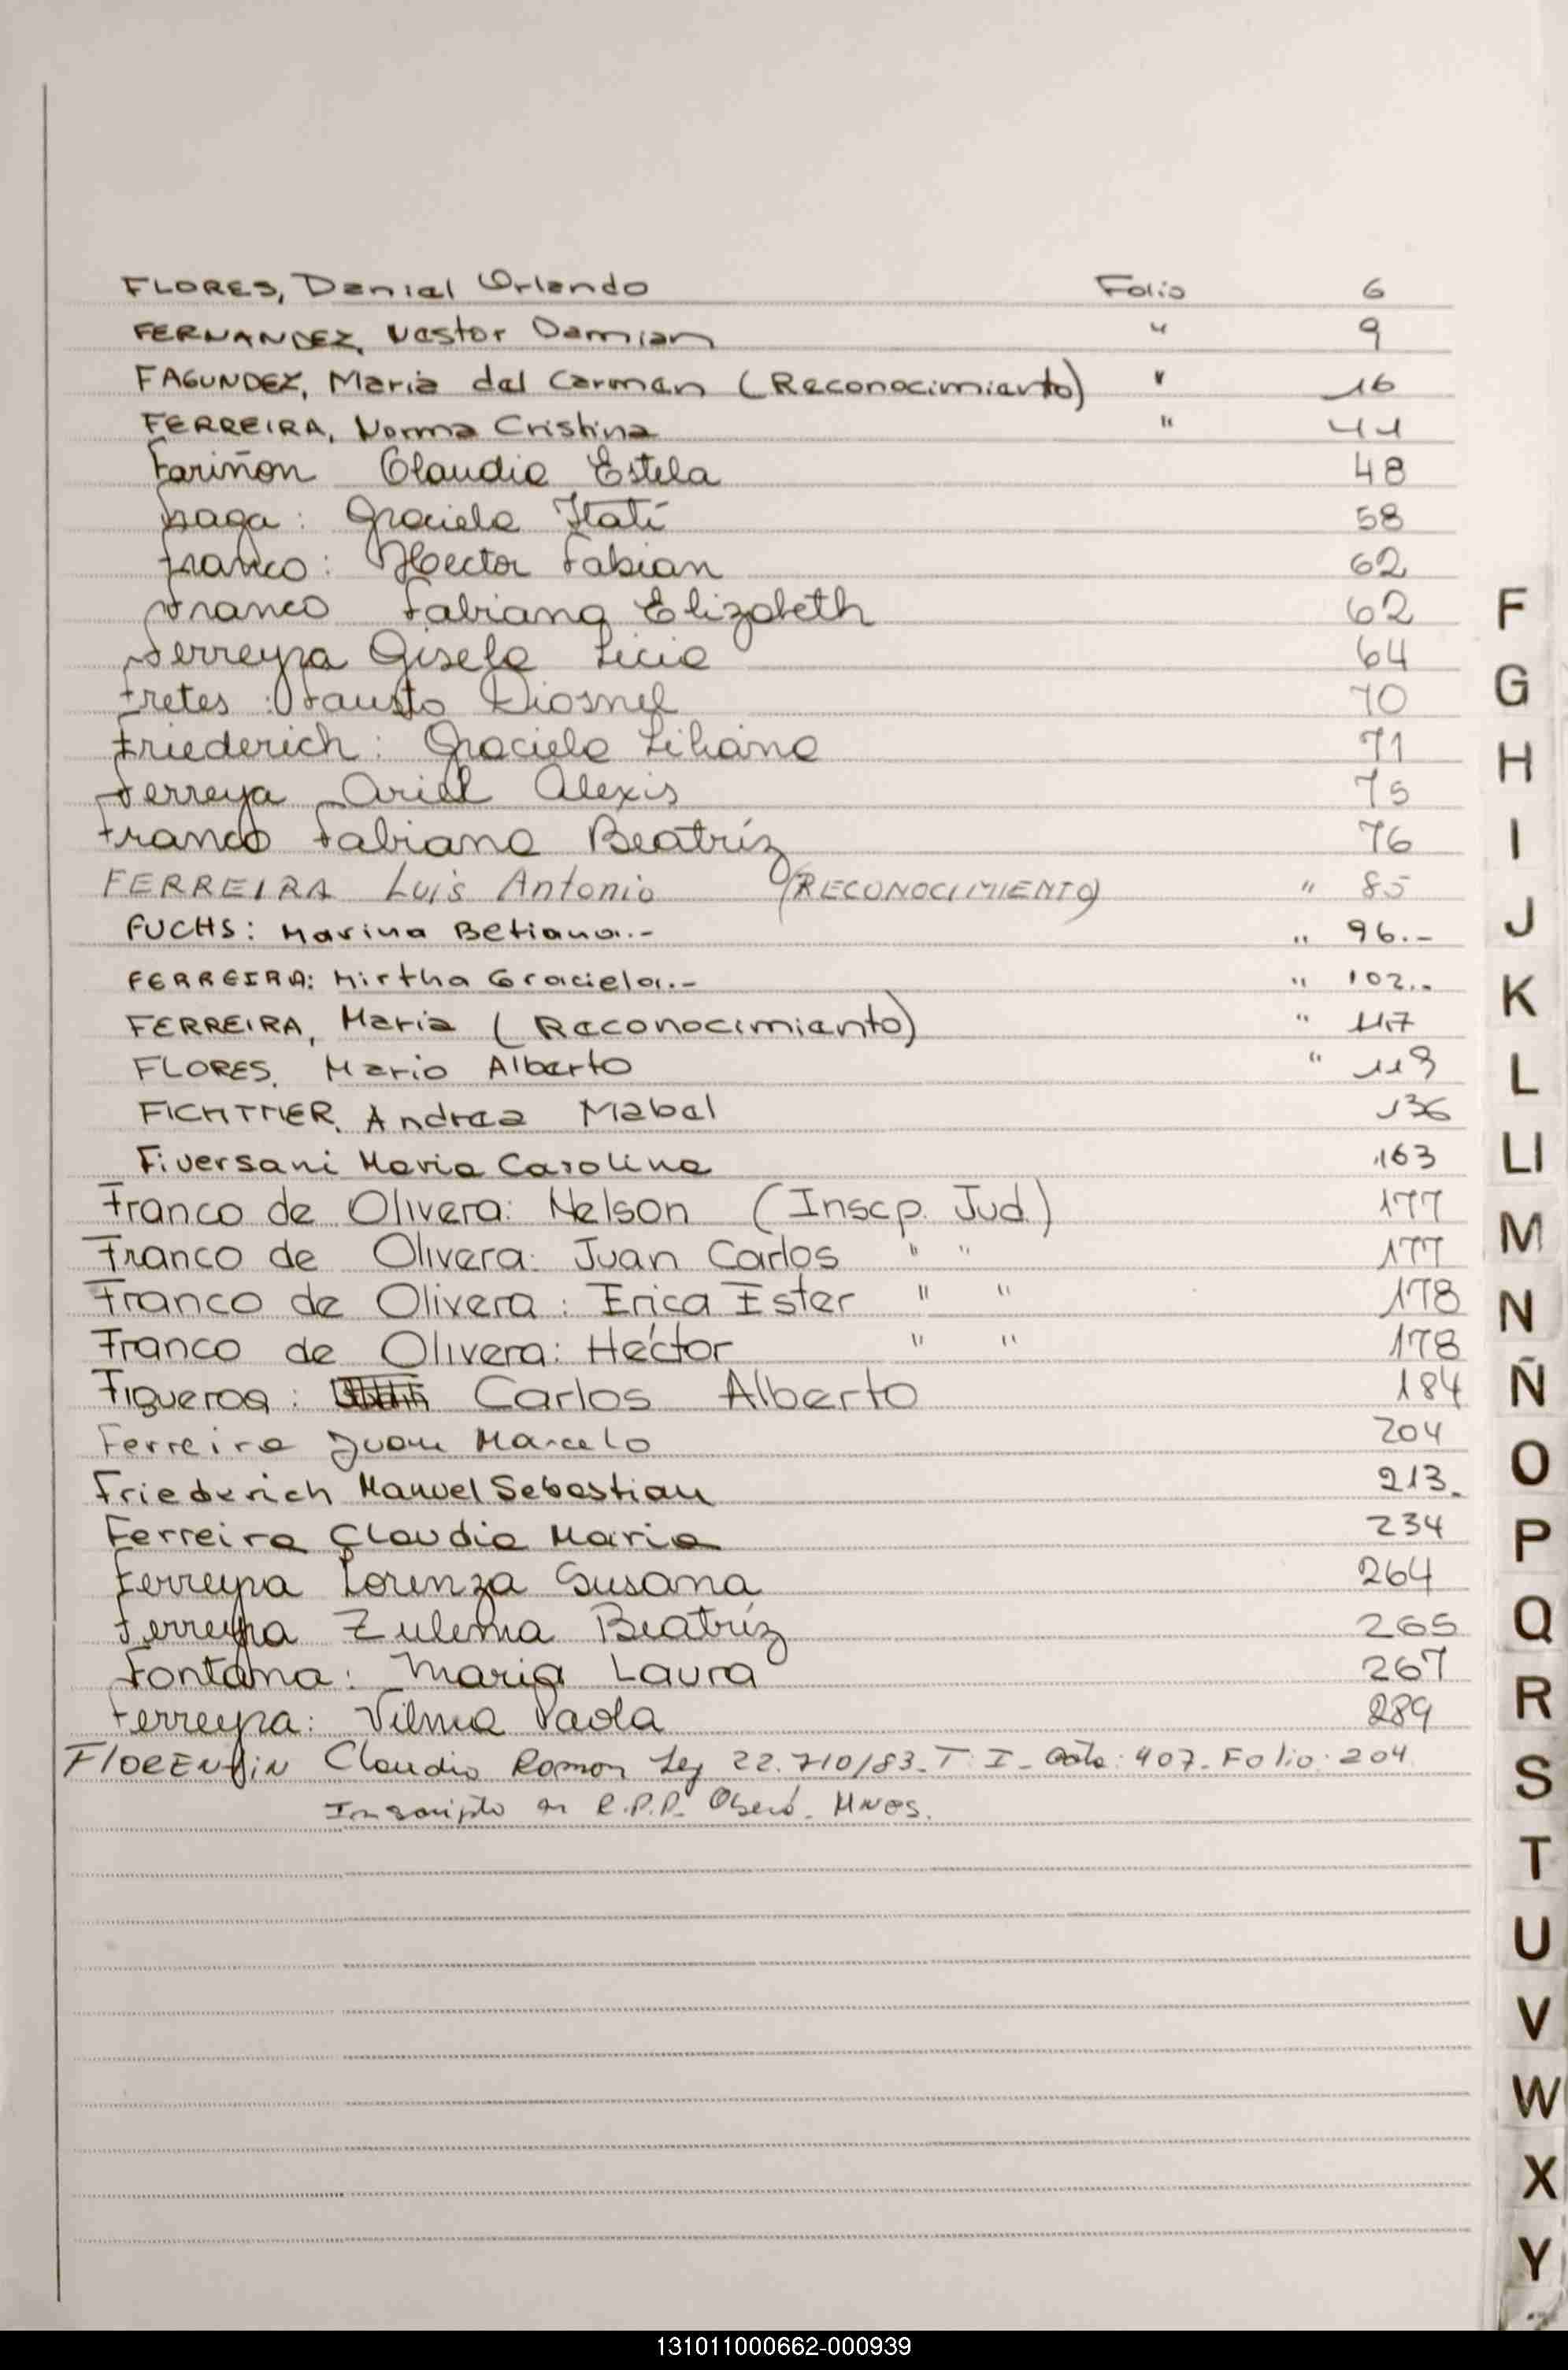 FLORES, Daniel Orlando Folio 6
FERNANDEZ, Nestor Damian " 9
FAGUNDEZ, Maria del Carmen (Reconocimiento) " 16
FERREIRA, Norma Cristina " 44
Fariñon Claudia Estela 48
Fraga: Graciela Itatí 58
Franco: Hector Fabian 62
Franco Fabiana Elizabeth 62
Ferreyra Gisela Licia 64
Fretes: Fausto Diosnel 70
Friederich: Graciela Liliana 71
Ferreya Ariel Alexis 75
Franco Fabiana Beatríz 76
FERREIRA Luis Antonio (RECONOCIMIENTO) " 85
FUCHS: Marina Betiana.- " 96.-
FERREIRA: Mirtha Graciela.- " 102.-
FERREIRA, Maria (Reconocimiento) " 117
FLORES, Mario Alberto " 119
FICHTNER, Andrea Mabel 136
Fiversani Maria Carolina 163
Franco de Olivera: Nelson (Inscp. Jud.) 177
Franco de Olivera: Juan Carlos " " 177
Franco de Olivera: Erica Ester " " 178
Franco de Olivera: Héctor " " 178
Figueroa: Carlos Alberto 184
Ferreira Juan Marcelo 204
Friederich Manuel Sebastian 213.
Ferreira Claudia Maria 234
Ferreyra Lorenza Susana 264
Ferreyra Zulema Beatríz 265
Fontana: Maria Laura 267
Ferreyra: Vilma Paola 289
FlORENTiN Claudio Ramon Ley 22.710/83. T: I_ Acta: 407. Folio: 204.
Inscripto en R.P.P. Oberá. Mnes.
F
G
H
I
J
K
L
Ll
M
N
Ñ
O
P
Q
R
S
T
U
V
W
X
Y
131011000662-000939